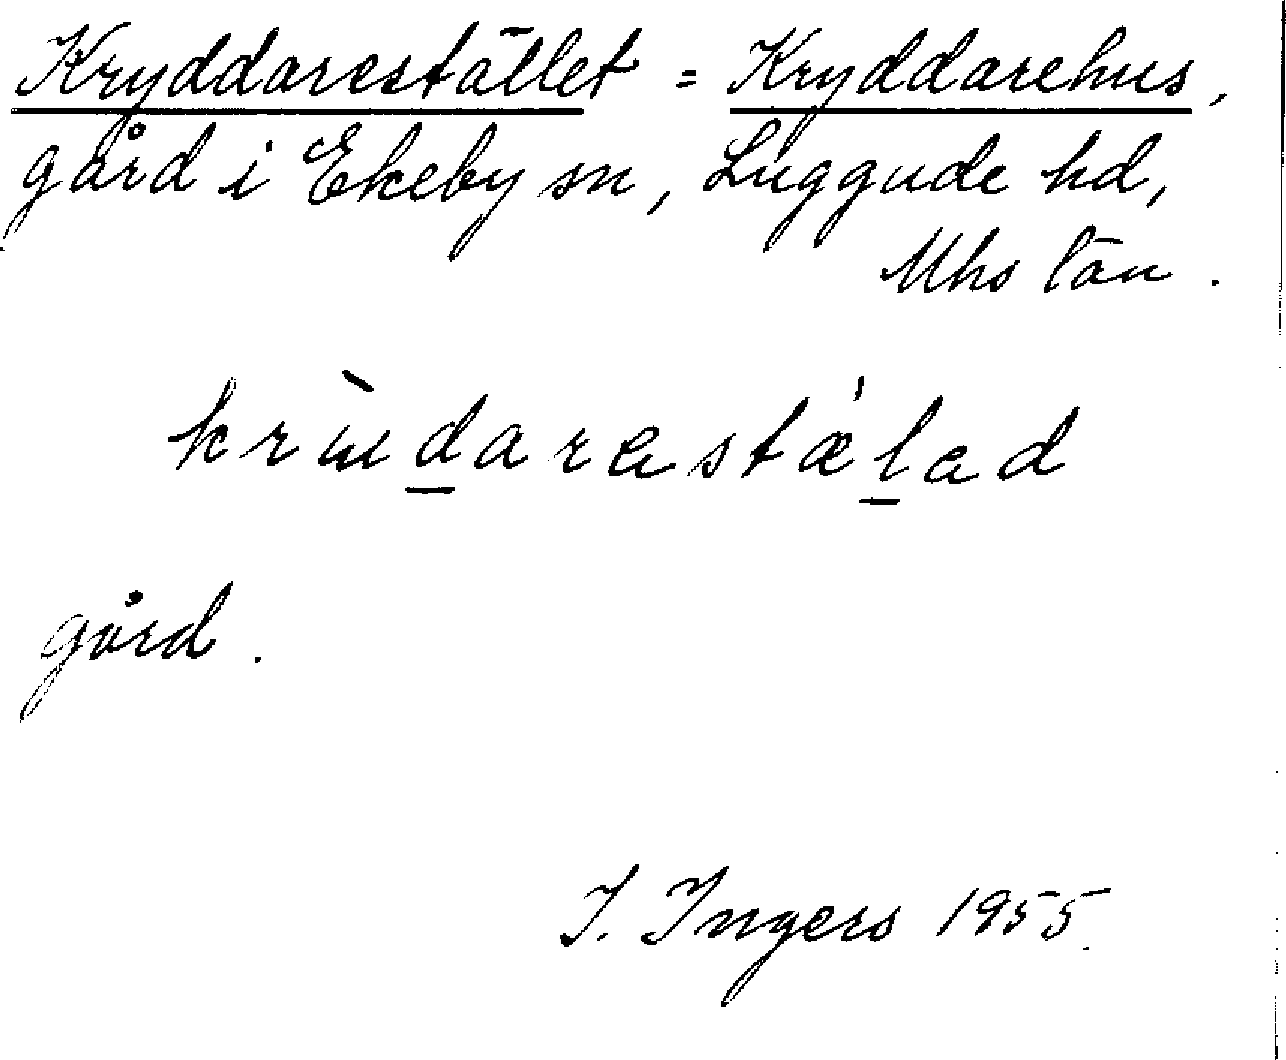 Kryddarestället = Kryddarehus,
gård i Ekeby sn, Luggude hd,
Mhs län.
krɯ̀d̲arɐstæ̍l̲ad
gård.
I. Ingers 1955.